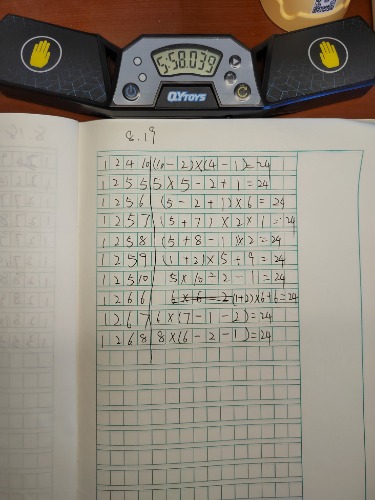 5:58.039
QYTOYS
8.19
1 2 4 10 (10-2)×(4-1)=24
1 2 5 5 5×5-2+1=24
1 2 5 6 (5-2+1)×6=24
1 2 5 7 (5+7)×2×1=24
1 2 5 8 (5+8-1)×2=24
1 2 5 9 (1+2)×5+9=24
1 2 5 10 5×10÷2-1=24
1 2 6 6 (1+2)×6+6=24
1 2 6 7 6×(7-1-2)=24
1 2 6 8 8×(6-2-1)=24